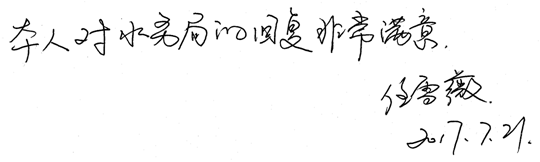 本人对水务局的回复非常满意.
任雪薇.
2017.7.21.